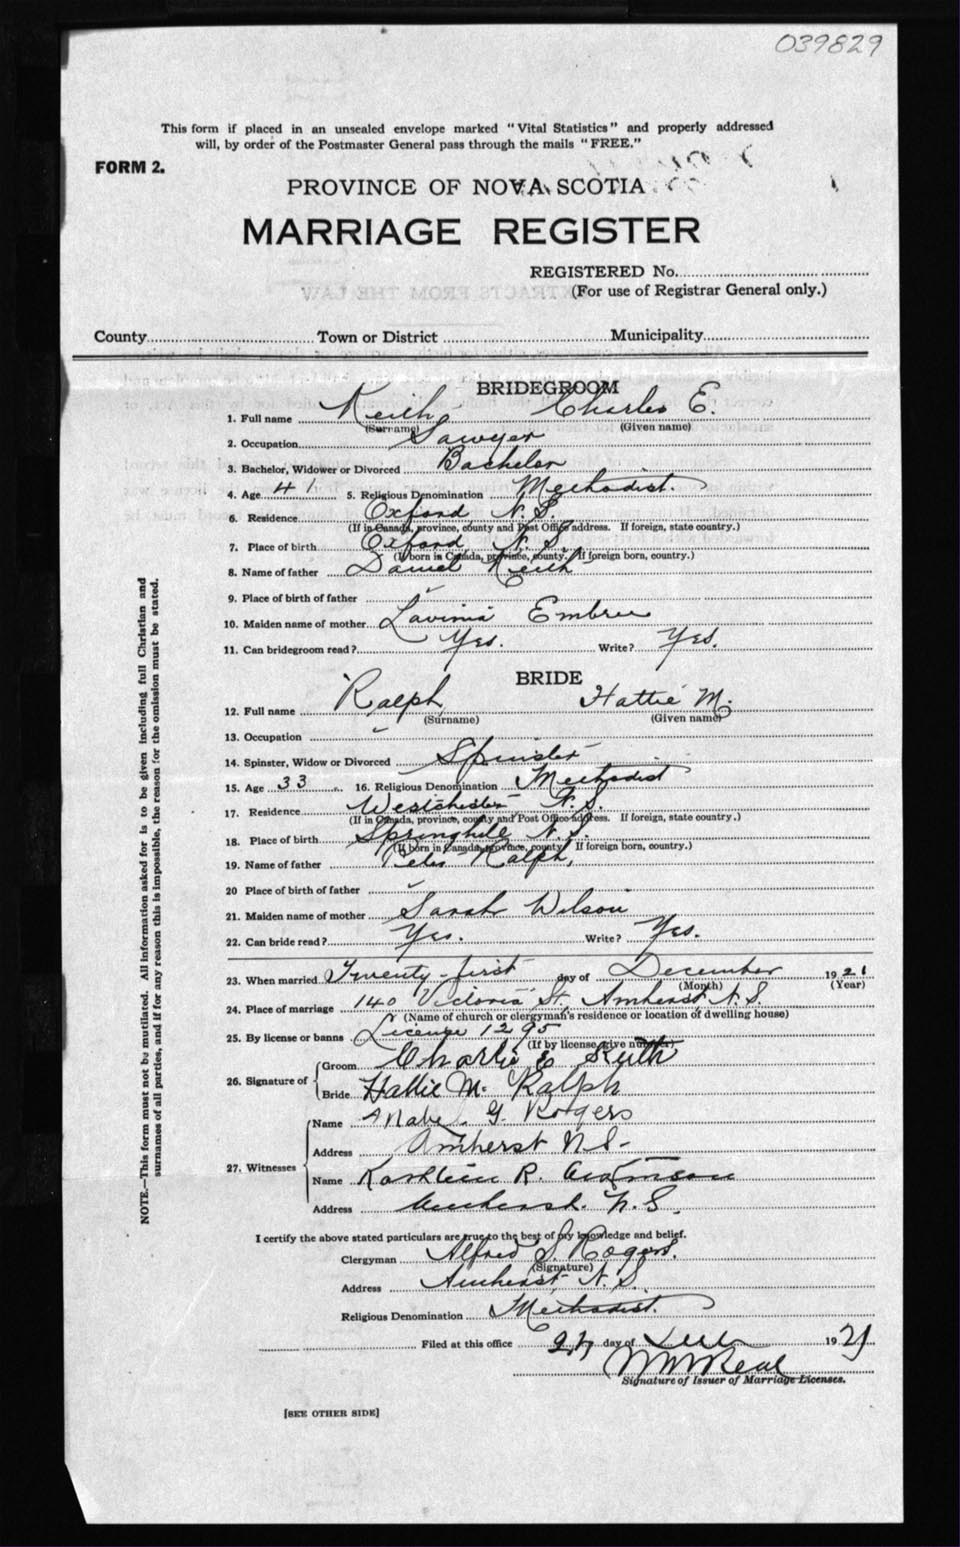 039829
This form if placed in an unsealed envelope marked "Vital Statistics" and properly addressed
will, by order of the Postmaster General pass through the mails "FREE."
FORM 2.
PROVINCE OF NOVA SCOTIA
MARRIAGE REGISTER
REGISTERED No.
(For use of Registrar General only.)
County Town or District Municipality
BRIDEGROOM
1. Full name Keith, Charles E.
(Surname) (Given name)
2. Occupation Sawyer
3. Bachelor, Widower or Divorced Bachelor
4. Age 41 5. Religious Denomination Methodist.
6. Residence Oxford N. S.
(If in Canada, province, county and Post Office address. If foreign, state country.)
7. Place of birth Oxford N. S.
(If born in Canada, province, county. If foreign born, country.)
8. Name of father Daniel Keith
9. Place of birth of father
10. Maiden name of mother Lavinia Embree
11. Can bridegroom read? Yes. Write? Yes.
BRIDE
12. Full name Ralph, Hattie M.
(Surname) (Given name)
13. Occupation
14. Spinster, Widow or Divorced Spinster
15. Age 33 16. Religious Denomination Methodist
17. Residence Westchester N. S.
(If in Canada, province, county and Post Office address. If foreign, state country.)
18. Place of birth Springhill N. S.
(If born in Canada, province, county. If foreign born, country.)
19. Name of father Peter Ralph,
20 Place of birth of father
21. Maiden name of mother Sarah Wilson
22. Can bride read? Yes. Write? Yes.
23. When married Twenty-first day of December 1921
(Month) (Year)
24. Place of marriage 140 Victoria St., Amherst, N. S.
(Name of church or clergyman's residence or location of dwelling house)
25. By license or banns License 1295
(If by license, give number)
26. Signature of Groom Charlie E Keith
Bride Hattie M. Ralph
27. Witnesses Name G. Rogers
Address Amherst N.S-
Name Kathleen R.
Address Amherst. N. S.
I certify the above stated particulars are true to the best of my knowledge and belief.
Clergyman Alfred S. Rogers.
(Signature)
Address Amherst N. S.
Religious Denomination Methodist.
Filed at this office day of 1921
Signature of Issuer of Marriage Licenses.
[SEE OTHER SIDE]
NOTE.—This form must not be mutilated. All information asked for is to be given including full Christian and
surnames of all parties, and if for any reason this is impossible, the reason for the omission must be stated.
EXTRACTS FROM THE LAW